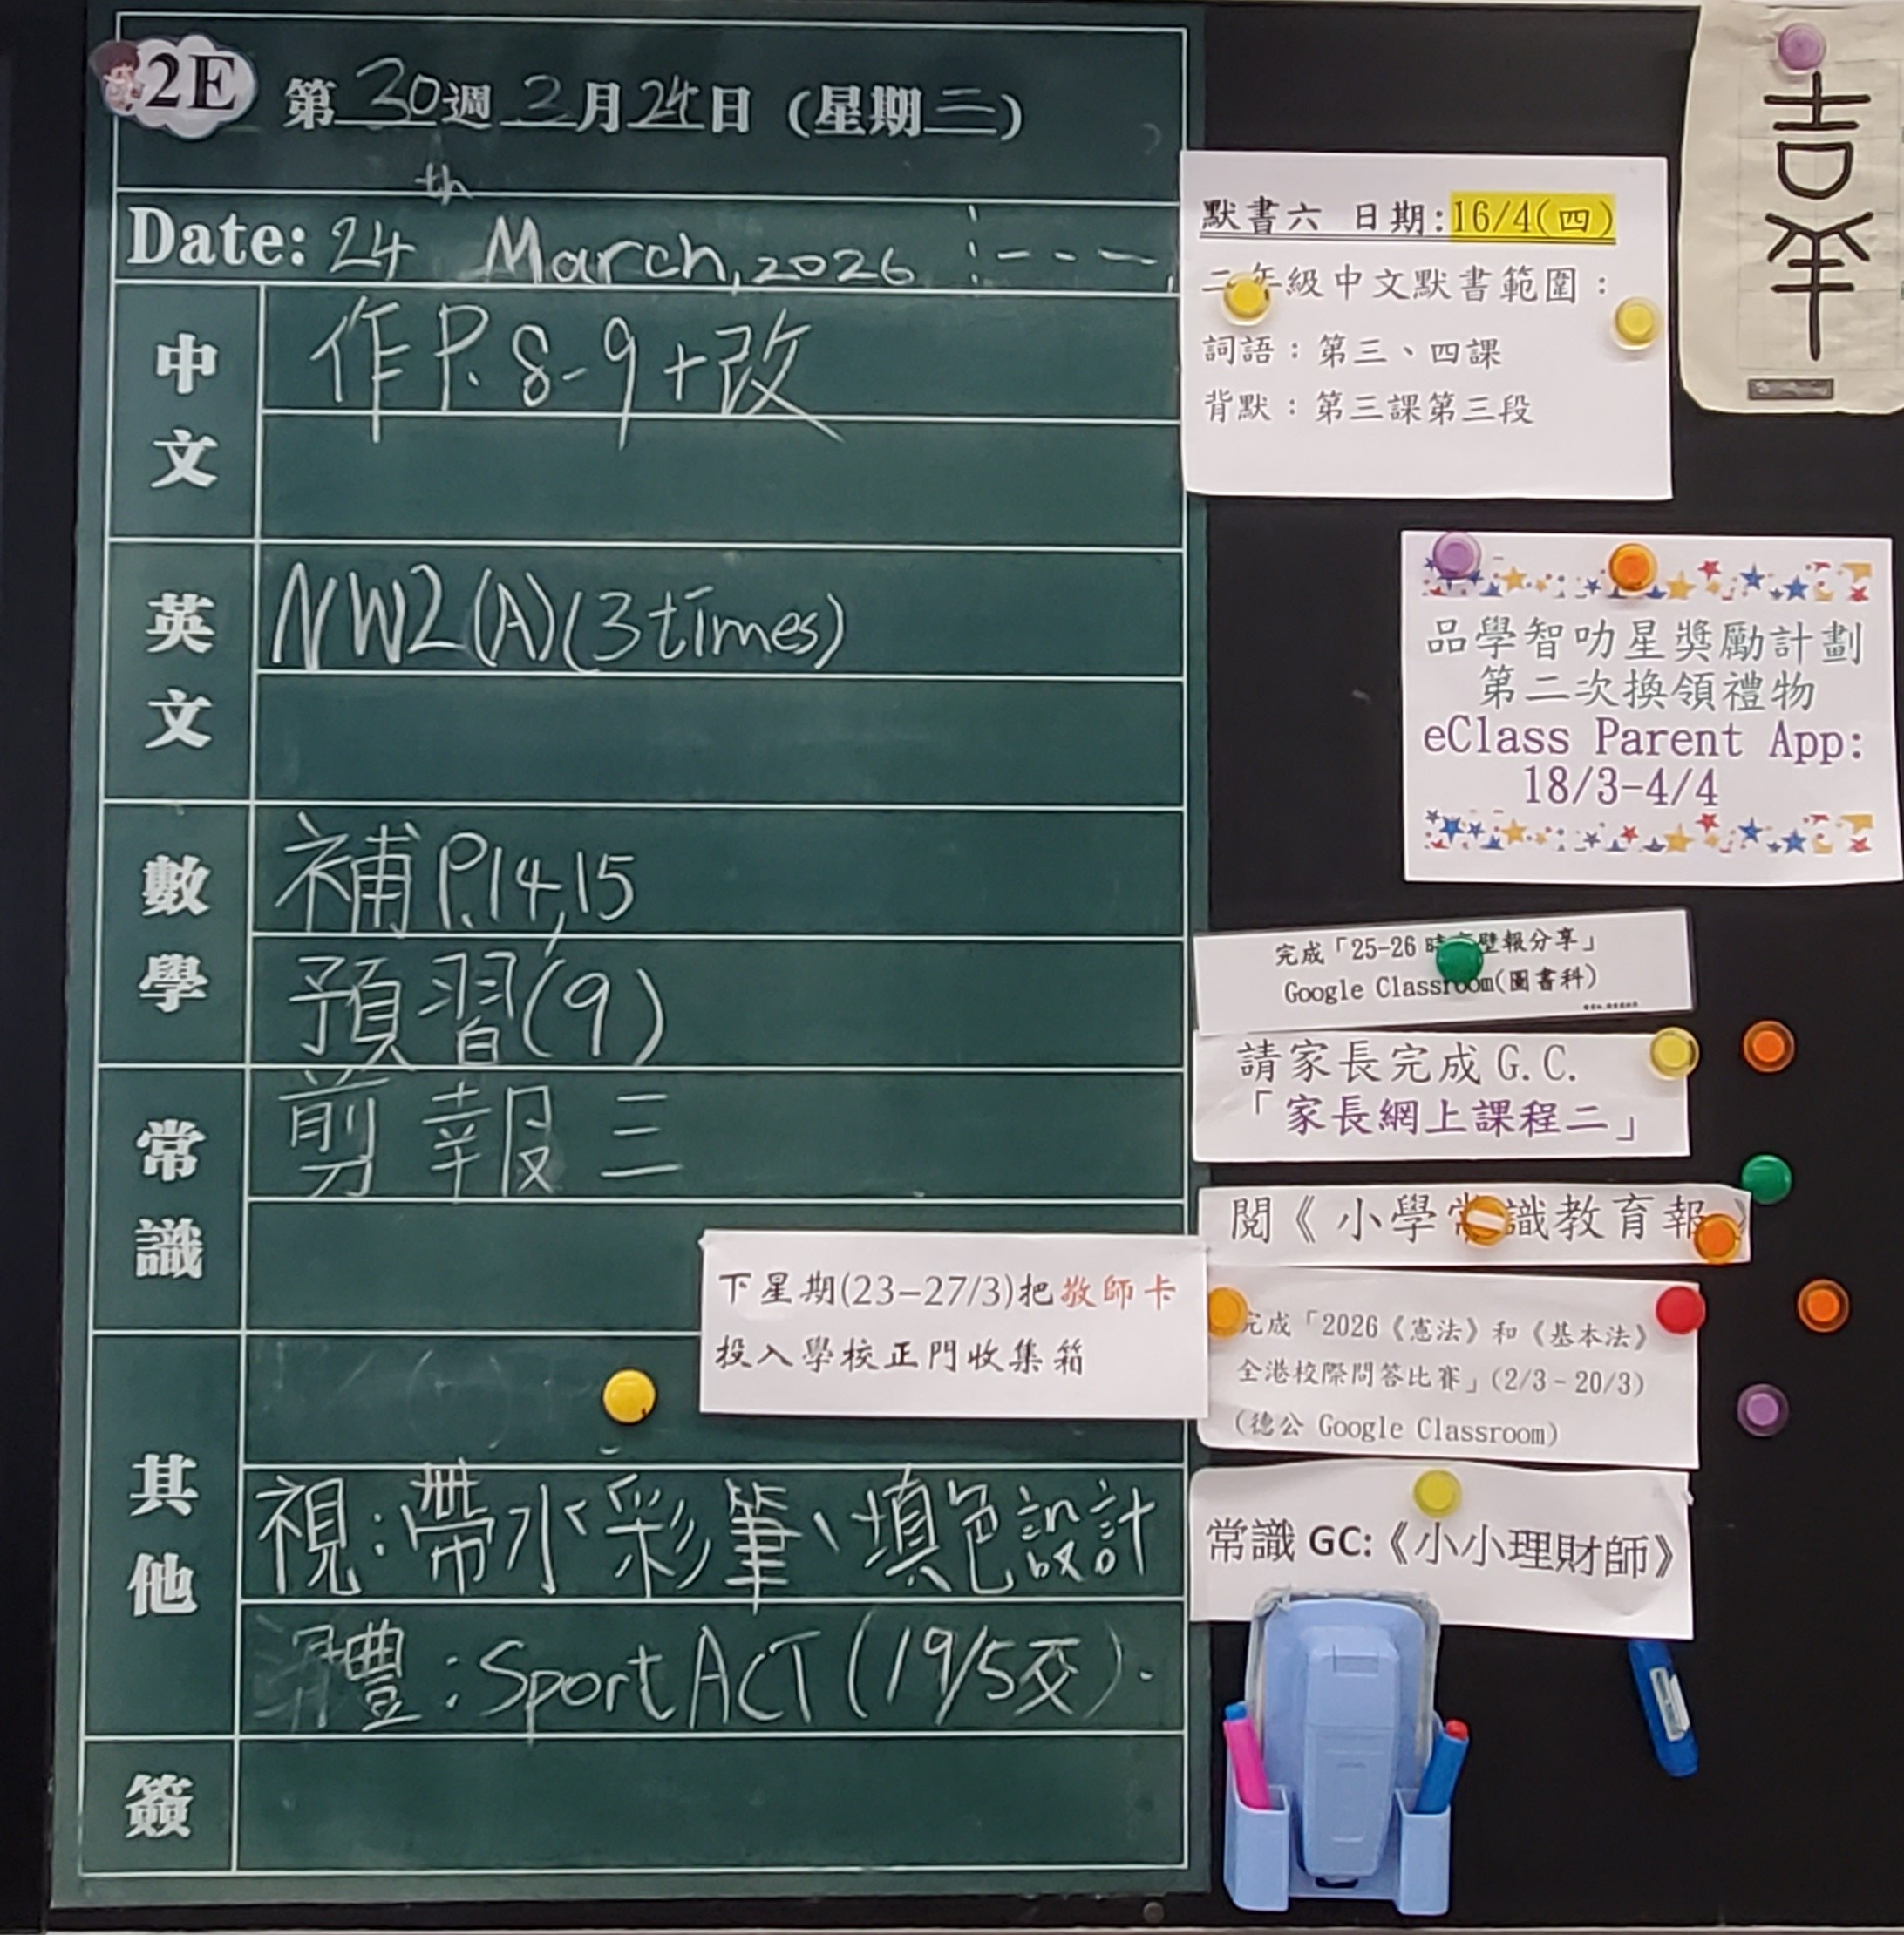 2E 第30週3月24日(星期二)
Date: 24th March, 2026
中文
作P.8-9+改
英文
NW2(A)(3times)
數學
補P.14,15
預習(9)
常識
剪報三
其他
視:帶水彩筆、填色設計
體:Sport ACT(19/5交)
簽
下星期(23-27/3)把敬師卡
投入學校正門收集箱
默書六 日期:16/4(四)
二年級中文默書範圍:
詞語:第三、四課
背默:第三課第三段
吉羊
品學智叻星獎勵計劃
第二次換領禮物
eClass Parent App:
18/3-4/4
完成「25-26 壁報分享」
Google Classroom(圖書科)
請家長完成 G.C.
「家長網上課程二」
閱《小學常識教育報》
完成「2026《憲法》和《基本法》
全港校際問答比賽」(2/3-20/3)
(德公 Google Classroom)
常識 GC:《小小理財師》